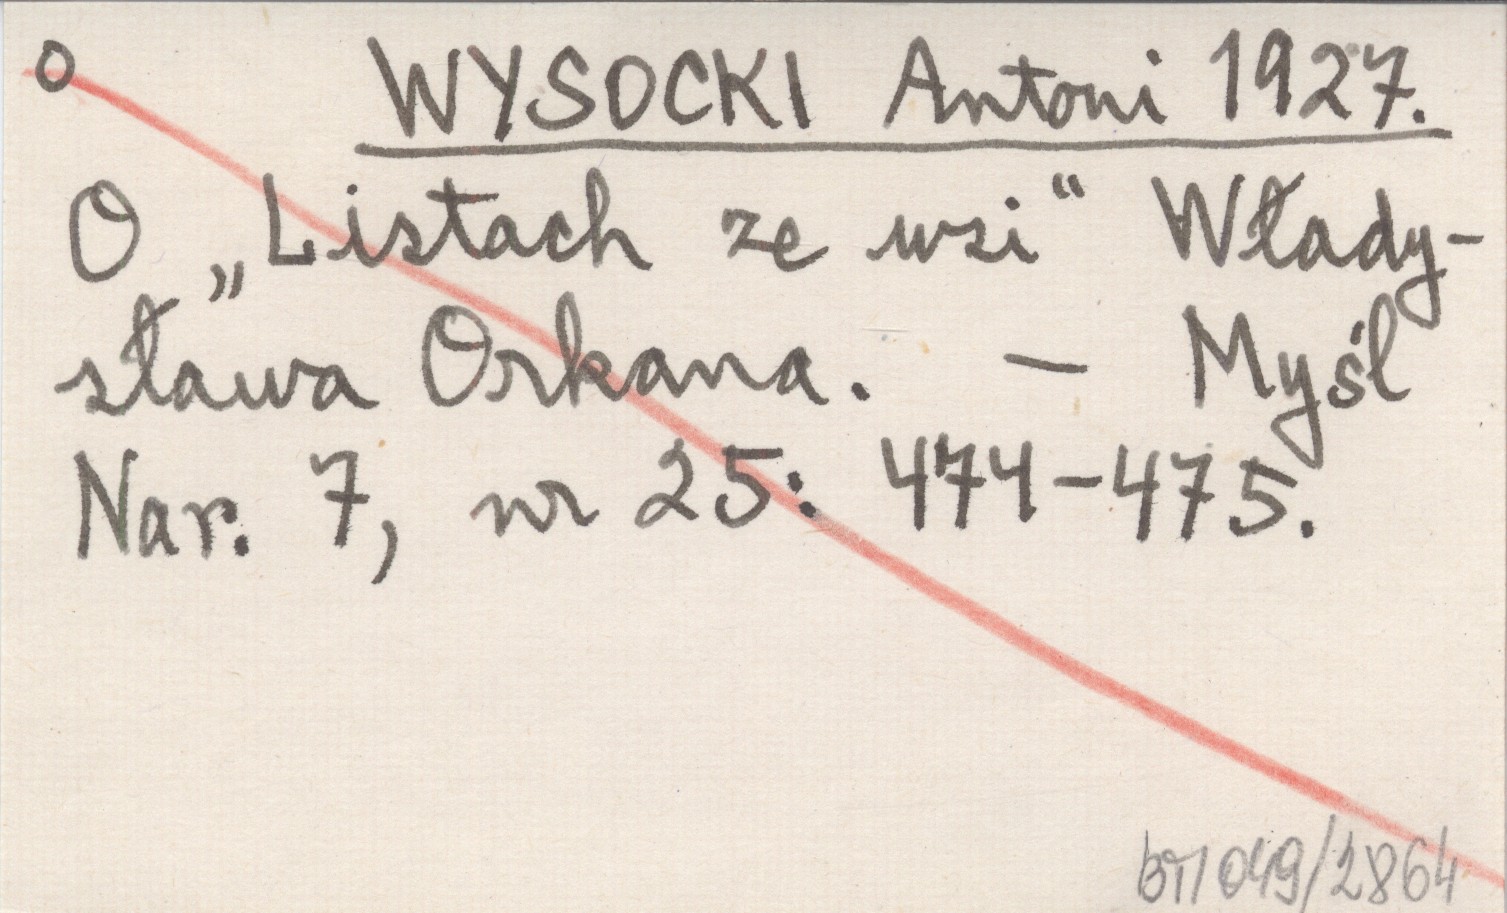 o WYSOCKI Antoni 1927.
O „Listach ze wsi“ Włady-
sława Orkana. – Myśl
Nar. 7, nr 25: 474-475.
049/2864